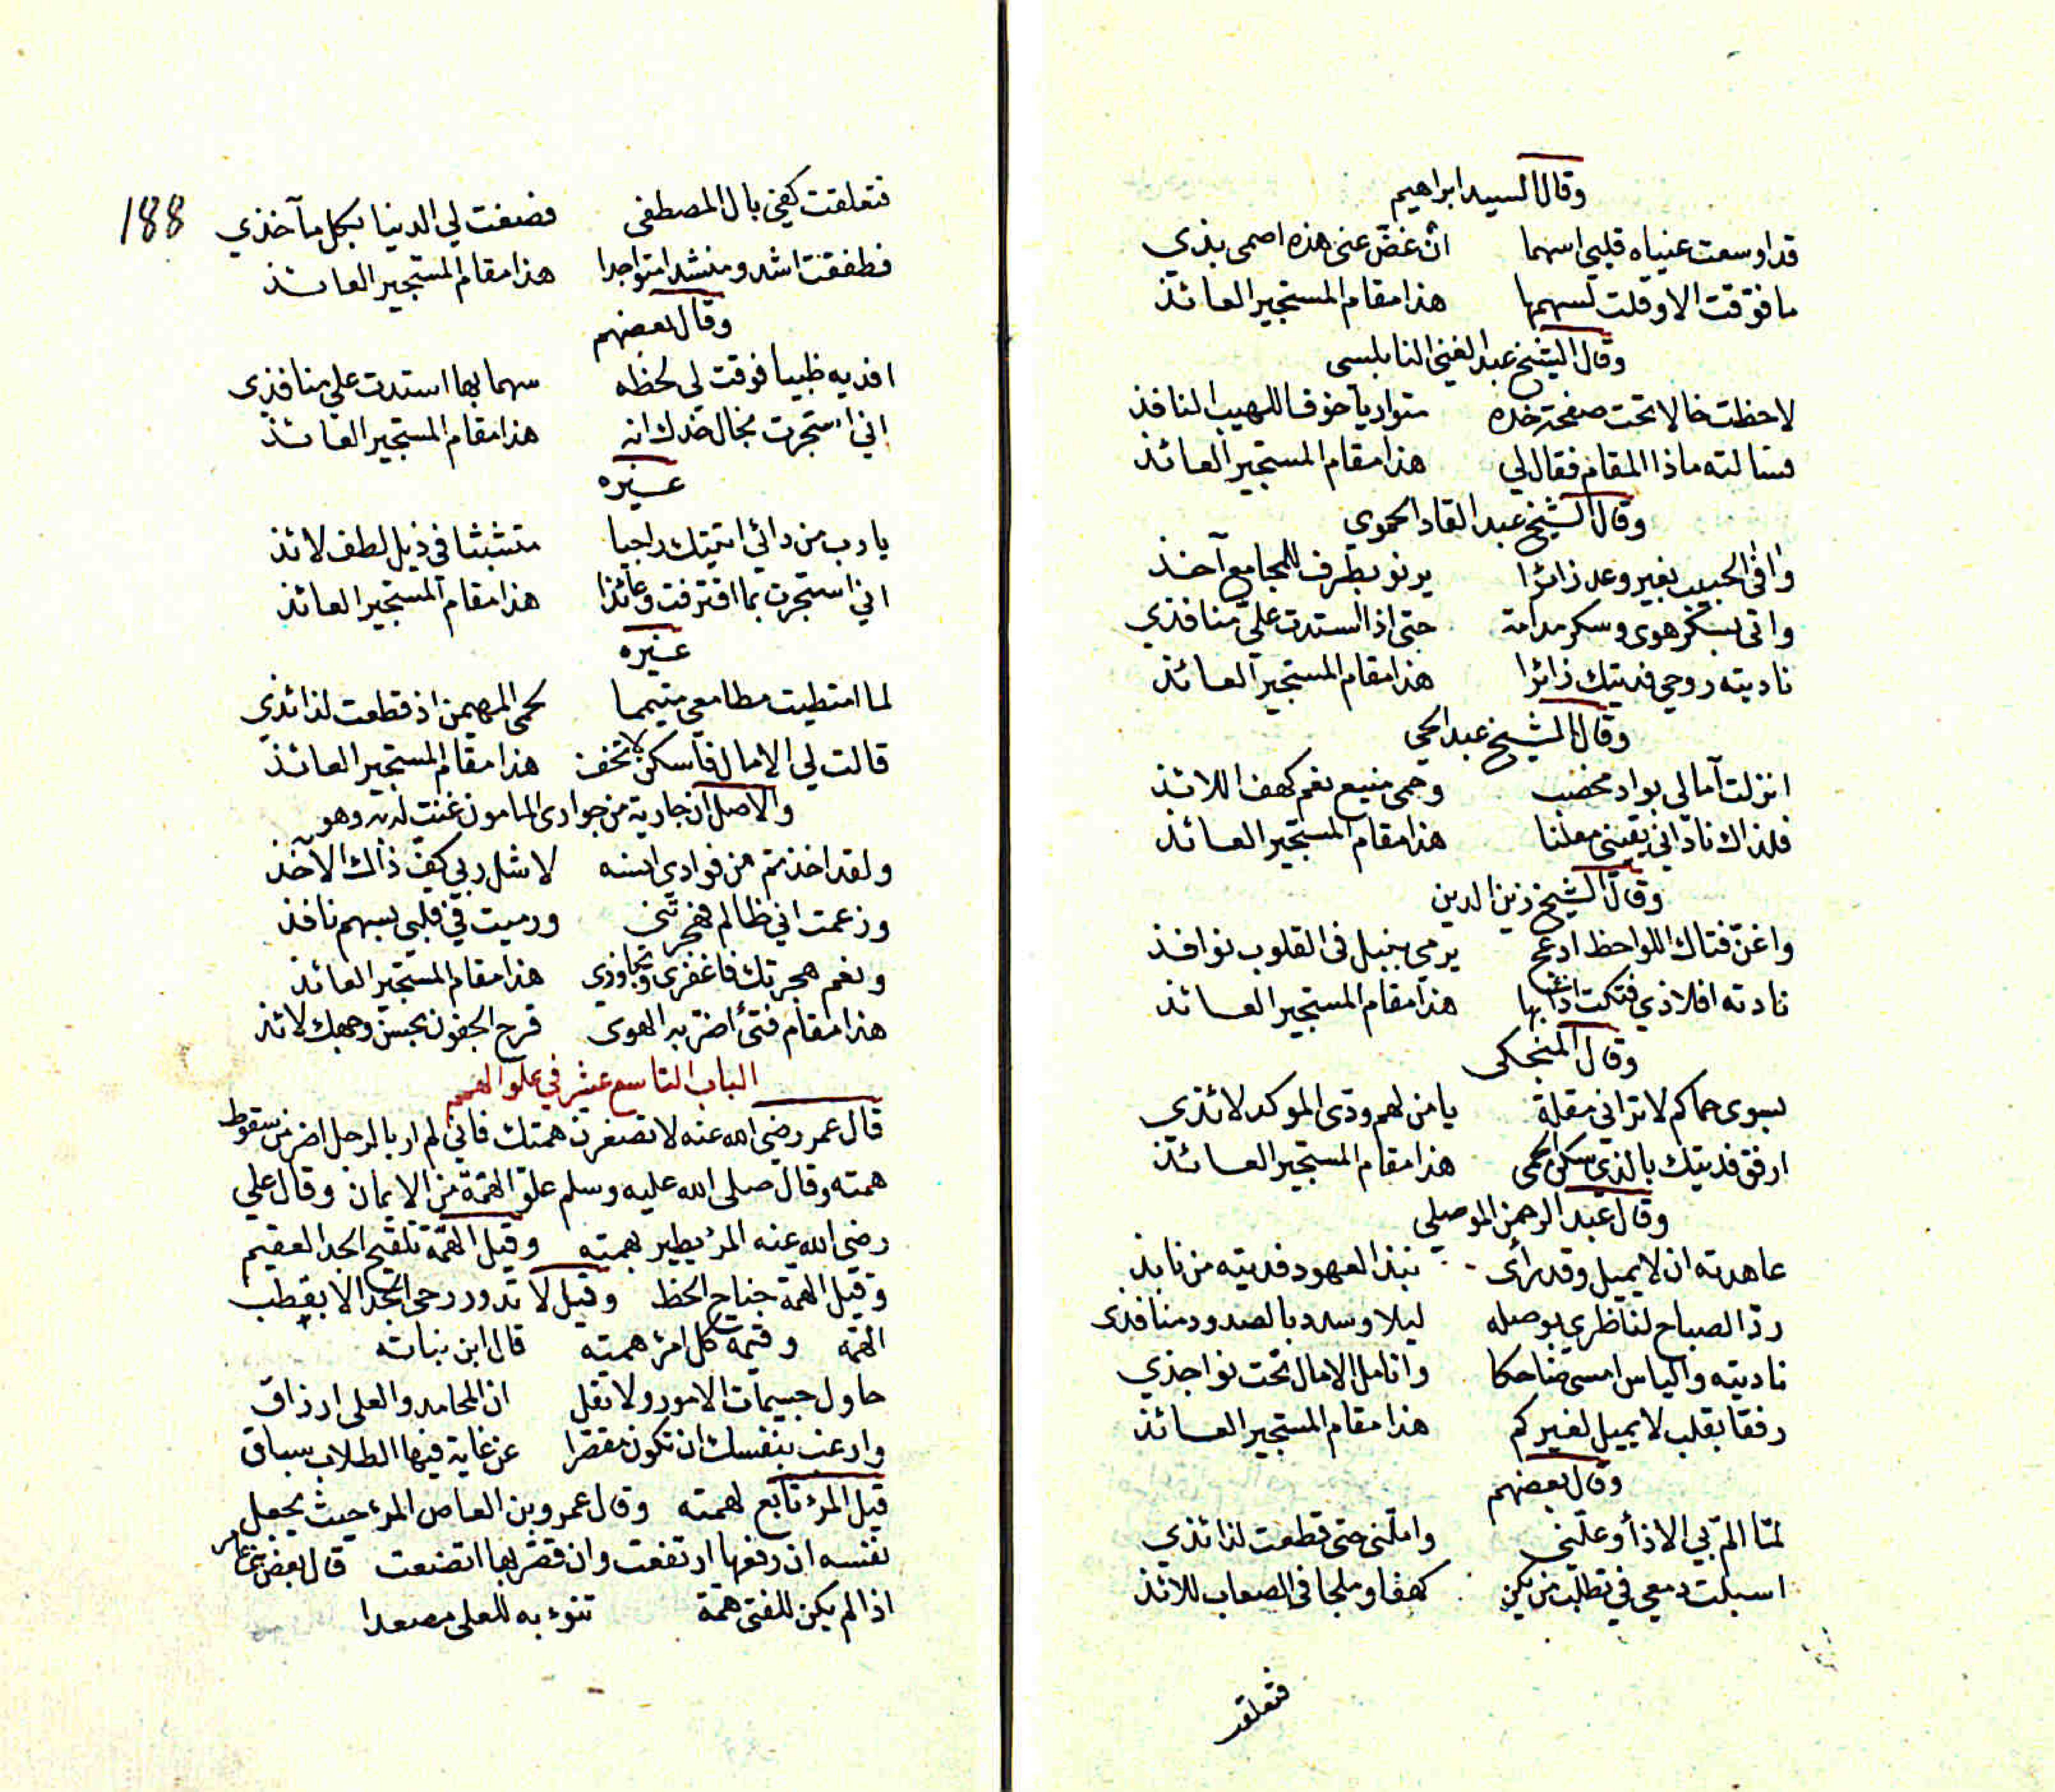 وقال السيد ابراهيم
قد اوسعت عنياه قلبي اسهما ان غضّ عني هذه اصمى بذي
ما فوّقت الا وقلت لسهمها هذا مقام المستجير العائذ
وقال الشيخ عبد الغني النابلسي
لاحظت خالا تحت صفحة خده متواريا خوف اللهيب النافذ
فسالته ماذا المقام فقال لي هذا مقام المستجير العائذ
وقال الشيخ عبد القاد الحموي
وافى الحبيب بغير وعد زائرا يرنو بطرف للمجامع آخذ
واتى بسكر هوى وسكر مدامة حتى اذا استدت عليّ منافذي
ناديته روحي فديتك زائرا هذا مقام المستجير العائذ
وقال الشيخ عبد الحي
انزلت آمالي بواد مخضب وحمى منيع نعم كهف اللائذ
فلذاك ناداني يقيني معلنا هذا مقام المستجير العائذ
وقال الشيخ زين الدين
واغنّ فتاك اللواحظ ادعج يرمي بنبل في القلوب نوافذ
نادته افلاذي فتكت بها هذا مقام المستجير العائذ
وقال المنجكي
بسوى حماكم لا تراني مقلة يا من لهم ودّى الموكد لائذي
ارفق فديتك بالذي سكن الحمى هذا مقام المستجير العائذ
وقال عبد الرحمن الموصلي
عاهدته ان لا يميل وقد رأى نبذ العهود فديته من نابذ
ردّ الصباح لناظري بوصله ليلا وسدد بالصدود منافذي
ناديته والياس امسى ضاحكا وانامل الامال تحت نواجذي
رفقا بقلب لا يميل لغيركم هذا مقام المستجير العائذ
وقال بعضهم
لمّا المّ بي الاذا وعلّني واملّني حتى قطعت لذائذي
اسبلت دمعي في تطلّب من يكن كهفا وملجا في الصعاب للائذ
فتعلقت
188
فتعلقت كفي بال المصطفى فضعفت لي الدنيا بكل مآخذي
فطفقت اشدو منشدا متواجدا هذا مقام المستجير العائذ
وقال بعضهم
افديه ظبيا فوقت لي لحظه سهما بها استدت علي منافذي
اني استجرت بخال خدك انه هذا مقام المستجير العائذ
غيره
يا رب من دائي اتيتك راجيا متشبثا في ذيل لطف لائذ
اني استجرت بما اقترفت وعائذا هذا مقام المستجير العائذ
غيره
لما امتطيت مطامعي متيمما لحمى المهيمن اذ قطعت لذائذي
قالت لي الامال فاسكن لا تخف هذا مقام المستجير العائذ
والاصل ان جارية من جواري المامون غنت لديه وهو
ولقد اخذتم من فوادي انسه لا شل ربي كفّ ذاك الآخذ
وزعمت اني ظالم فهجرتني ورميت في قلبي بسهم نافذ
ونعم هجرتك فاغفري وتجاوزي هذا مقام المستجير العائذ
هذا مقام فتى اضرّ به الهوى قرح الجفون بحسن وجهك لائذ
الباب التاسع عشر في علو الهمم
قال عمر رضي الله عنه لا تصغرن همتك فاني لم ار بالرجل اضر من سقوط
همته وقال صلى الله عليه وسلم علوّ الهمّة من الايمان وقال علي
رضي الله عنه المرؤ يطير بهمته وقيل الهمّة تلقّح الجد العقيم
وقيل الهمة جناح الحظ وقيل لا تدور رحى المجد الا بقطب
الهمّة وقيمة كل امرؤ همته قال ابن نباته
حاول جسيمات الامور ولا تقل ان المحامد والعلى ارزاق
وارغب بنفسك ان تكون مقصرا عن غاية فيها الطلاب سباق
قيل المرؤ تابع لهمته وقال عمرو بن العاص المرء حيث يجعل
نفسه ان رفعها ارتفعت وان قصّر بها اتضعت قال بعض بني عامر
اذا لم يكن للفتى همّة تنوء به للعلى مصعدا